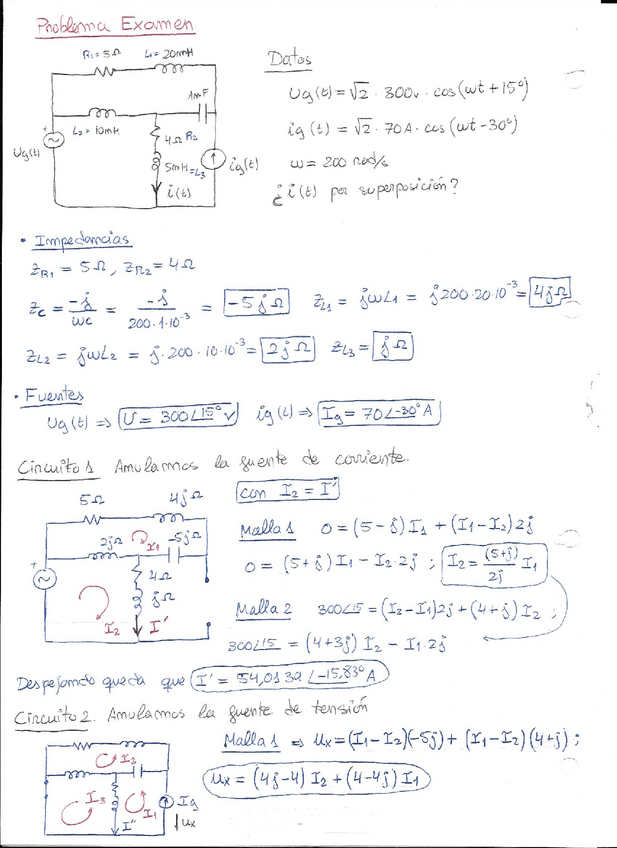 Problema Examen
R1 = 5Ω L1 = 20mH
1mF
L2 = 10mH
4Ω R2
5mH = L3
Ug(t)
ig(t)
i(t)
Datos
Ug(t) = √2 · 300v · cos(ωt + 15°)
ig(t) = √2 · 70A · cos(ωt - 30°)
ω = 200 rad/s
¿i(t) por superposición?
• Impedancias
ZR1 = 5Ω, ZR2 = 4Ω
Zc = -j/ωc = -j/200·1·10⁻³ = -5jΩ ZL1 = jωL1 = j200·20·10⁻³ = 4jΩ
ZL2 = jωL2 = j·200·10·10⁻³ = 2jΩ ZL3 = jΩ
• Fuentes
Ug(t) ⇒ U = 300∠15° V ig(t) ⇒ Ig = 70∠-30° A
Circuito 1 Anulamos la fuente de corriente.
5Ω 4jΩ
2jΩ I1 -5jΩ
4Ω
jΩ
I2 I'
con I2 = I'
Malla 1 0 = (5-j)I1 + (I1-I2)2j
0 = (5+j)I1 - I2·2j ; I2 = (5+j)/2j I1
Malla 2 300∠15 = (I2-I1)2j + (4+j)I2 ;
300∠15 = (4+3j)I2 - I1·2j
Despejando queda que I' = 54,0139∠-15,83° A
Circuito 2. Anulamos la fuente de tensión
I2
I3 I1 Ig
I'' ux
Malla 1 ⇒ ux = (I1-I2)(-5j) + (I1-I2)(4+j) ;
ux = (4j-4)I2 + (4-4j)I1